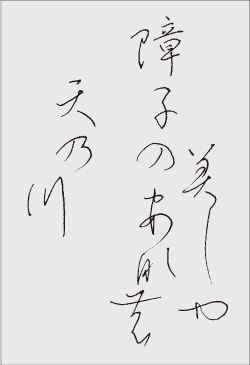 美しや
障子のあ那農
天乃川